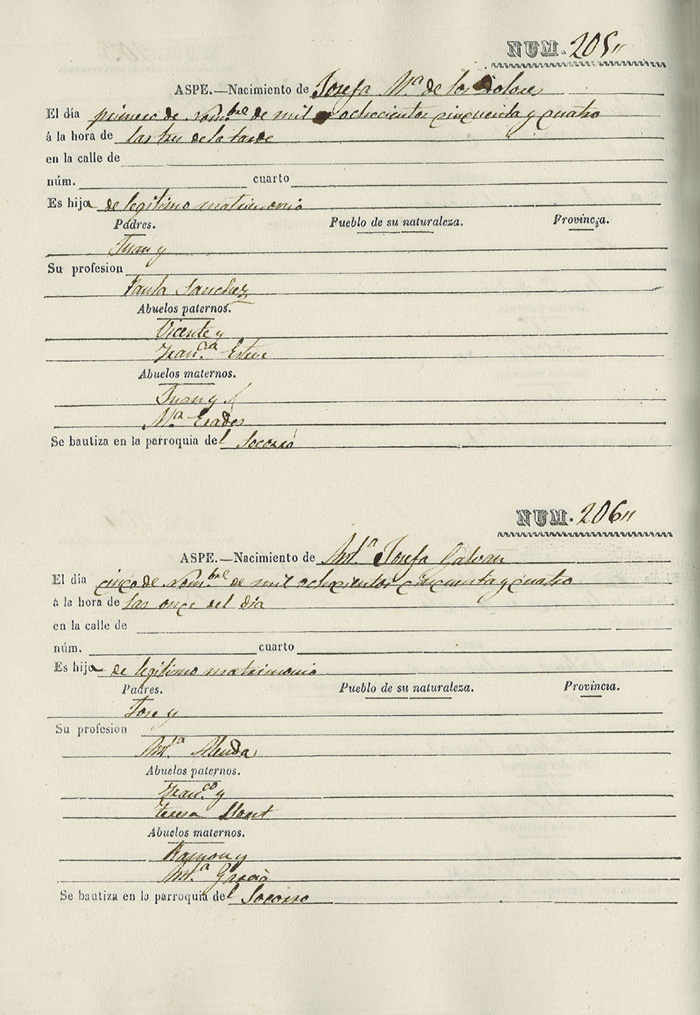 NUM. 205"
ASPE.—Nacimiento de Josefa Mª de los Dolores
El día primero de Nombre de mil ochocientos cincuenta y cuatro
á la hora de las tres de la tarde
en la calle de
núm. cuarto
Es hija de legitimo matrimonio
Padres. Pueblo de su naturaleza. Provincia.
Juan y
Su profesion
Paula Sanchez
Abuelos paternos.
Vicente y
Franca Esteve
Abuelos maternos.
Juan y
Mª
Se bautiza en la parroquia del Socorro
NUM. 206"
ASPE.—Nacimiento de Mª Josefa Galvan
El día cinco de Nombre de mil ochocientos cincuenta y cuatro
á la hora de las once del dia
en la calle de
núm. cuarto
Es hija de legitimo matrimonio
Padres. Pueblo de su naturaleza. Provincia.
Jose y
Su profesion
Mª
Abuelos paternos.
Franco y
Teresa
Abuelos maternos.
Ramon y
Mª Gracia
Se bautiza en la parroquia del Socorro